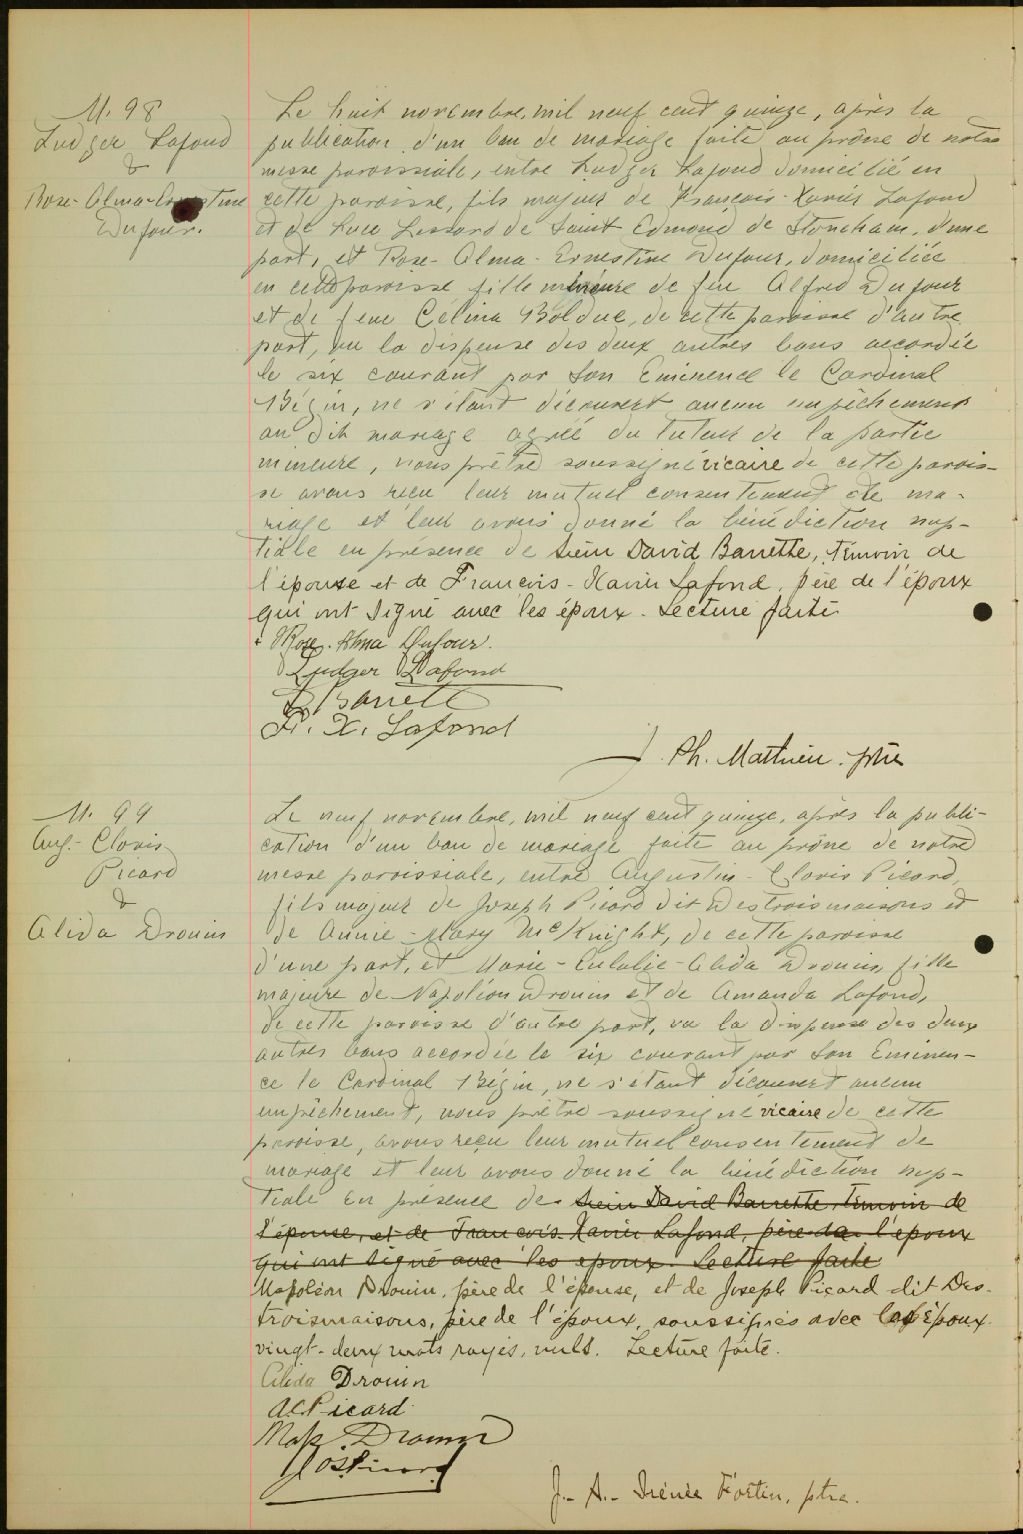 M. 98
Ludger Lafond
&
Rose-Alma-Ernestine
Dufour.
Le huit novembre, mil neuf cent quinze, après la
publication d'un ban de mariage faite au prône de notre
messe paroissiale, entre Ludger Lafond domicilié en
cette paroisse, fils majeur de François-Xavier Lafond
et de Luce Lessard de Saint Edmond de Stoneham, d'une
part, et Rose-Alma-Ernestine Dufour, domiciliée
en cette paroisse fille mineure de feu Alfred Dufour
et de feue Célina Bolduc, de cette paroisse d'autre
part, vu la dispense des deux autres bans accordée
le six courant par Son Eminence le Cardinal
Bégin, ne s'étant découvert aucun empêchement
au dit mariage agréé du tuteur de la partie
mineure, nous prêtre soussigné vicaire de cette parois-
se avons reçu leur mutuel consentement de ma-
riage et leur avons donné la bénédiction nup-
tiale en présence de David Barrette, témoin de
l'épouse et de François-Xavier Lafond, père de l'époux
qui ont signé avec les époux. Lecture faite
Rose-Alma Dufour.
Ludger Lafond
D Barrette
F. X. Lafond
J. Ph. Mathieu. ptre
M. 99
Aug.-Clovis
Picard
&
Alida Drouin
Le neuf novembre, mil neuf cent quinze, après la publi-
cation d'un ban de mariage faite au prône de notre
messe paroissiale, entre Augustin-Clovis Picard,
fils majeur de Joseph Picard dit Destroismaisons et
de Annie-Mary McKnight, de cette paroisse
d'une part, et Marie-Eulalie-Alida Drouin, fille
majeure de Napoléon Drouin et de Amanda Lafond,
de cette paroisse d'autre part, vu la dispense des deux
autres bans accordée le six courant par Son Eminen-
ce le Cardinal Bégin, ne s'étant découvert aucun
empêchement, nous prêtre soussigné vicaire de cette
paroisse, avons reçu leur mutuel consentement de
mariage et leur avons donné la bénédiction nup-
tiale en présence de David Barrette témoin de
l'épouse, et de François-Xavier Lafond, père de l'époux
qui ont signé avec les époux. Lecture faite
Napoléon Drouin, père de l'épouse, et de Joseph Picard dit Des-
troismaisons, père de l'époux, soussignés avec les époux.
vingt-deux mots rayés, nuls. Lecture faite.
Alida Drouin
A.C. Picard
Nap. Drouin
Jos Picard
J.-A.-Irénée Fortin, ptre.